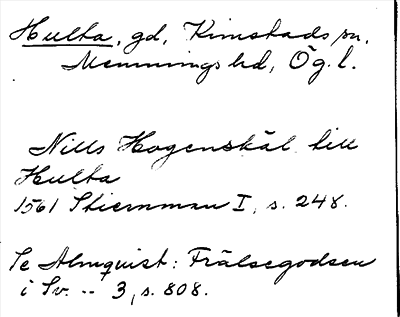 Hulta, gd, Kimstads sn,
Memmings hd, Ög. l.
Nills Hogenskäl till
Hulta
1561 Stiernman I, s. 248.
Se Almquist: Frälsegodsen
i Sv. -- 3, s. 808.